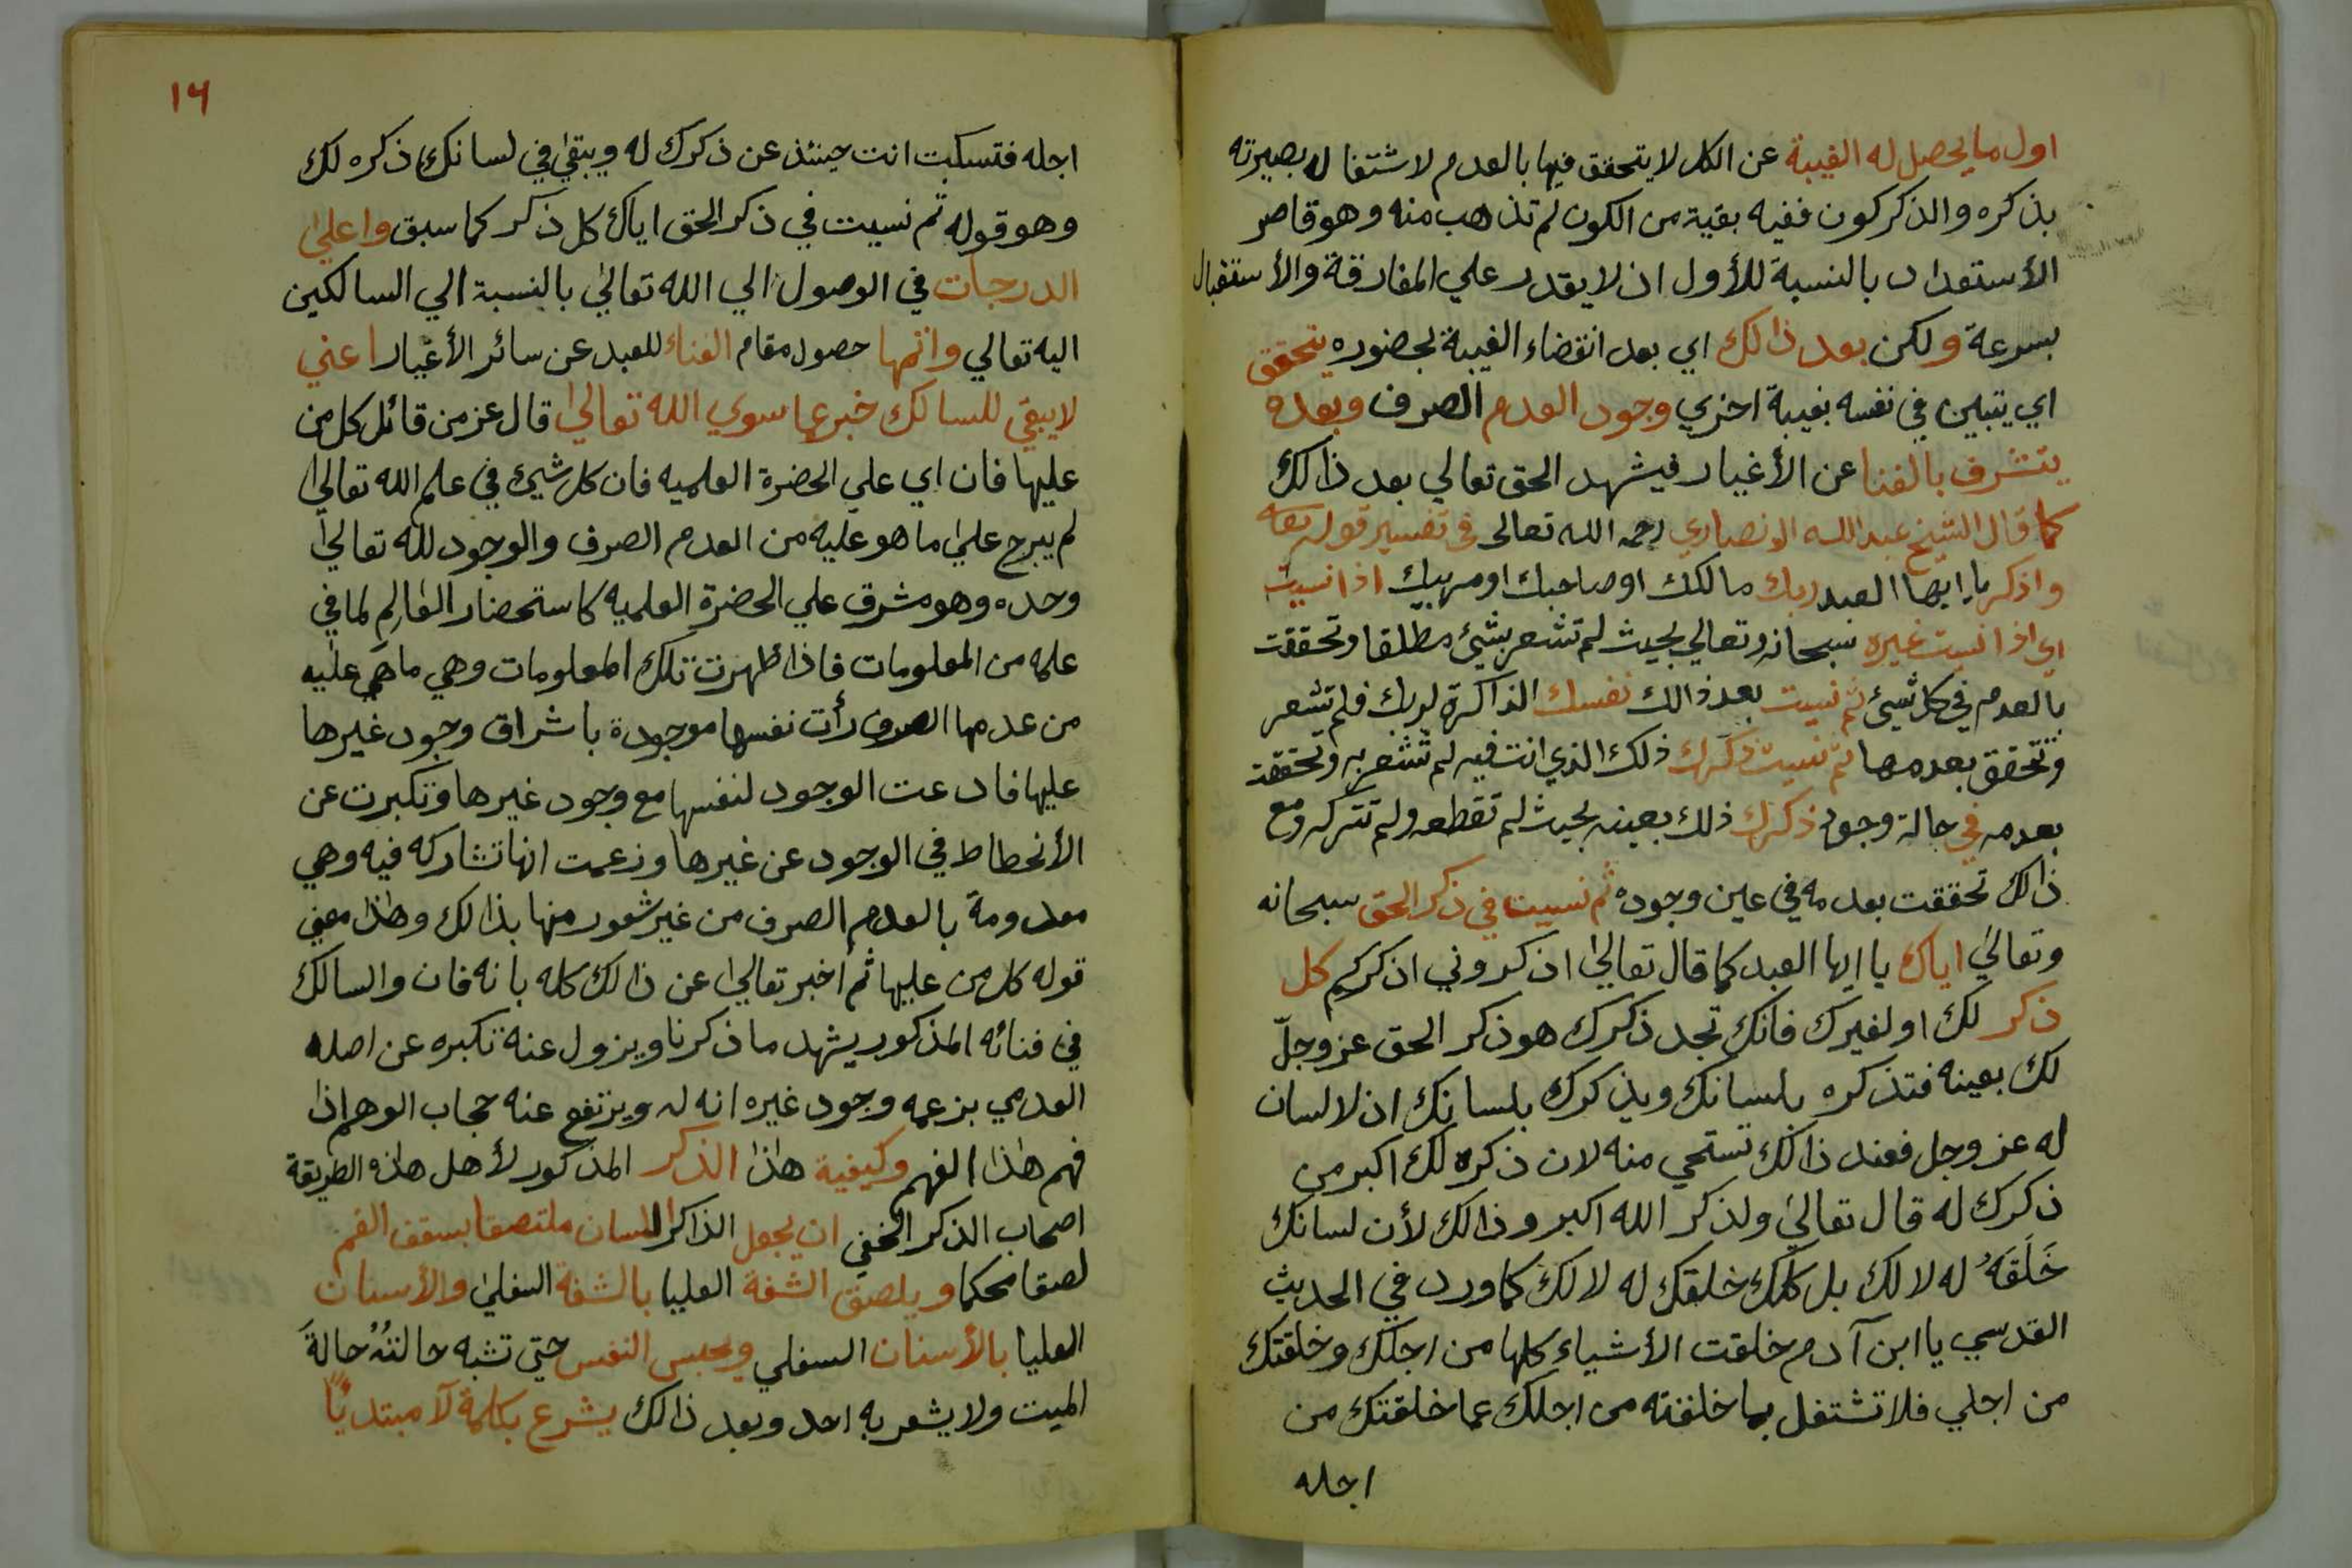 اول ما يحصل له الغيبة عن الكل لا يتحقق فيها بالعدم لاشتغاله بصيرته
بذكره والذكر كون ففيه بقية من الكون لم تذهب منه وهو قاصر
الأستعداد بالنسبة للأول اذ لا يقدر علي المفارقة والأستقبال
بسرعة ولكن بعد ذالك اي بعد انقضاء الغيبة لحضوره يتحقق
اي يتبين في نفسه بغيبة اخري وجود العدم الصرف وبعده
يتشرف بالفنا عن الأغيار فيشهد الحق تعالي بعد ذالك
كما قال الشيخ عبد الله الانصاري رحمه الله تعالى في تفسير قوله تعالى
واذكر يا ايها العبد ربك مالكك او صاحبك او مربيك اذا نسيت
اي اذا نسيت غيره سبحانه وتعالي بحيث لم تشعر بشئ مطلقا وتحققت
بالعدم في كل شيئ ثم نسيت بعد ذالك نفسك الذاكرة لربك فلم تشعر
وتتحقق بعدمها ثم نسيت ذكرك ذلك الذي انت فيه لم تشعر به وتحققت
بعدمه في حالة وجود ذكرك ذلك بعينه بحيث لم تقطعه ولم تتركه ومع
ذالك تحققت بعدمه في عين وجوده ثم نسيت في ذكر الحق سبحانه
وتعالي اياك يا ايها العبد كما قال تعالي اذكروني اذكركم كل
ذكر لك او لغيرك فانك تجد ذكرك هو ذكر الحق عز وجلّ
لك بعينه فتذكره بلسانك ويذكرك بلسانك اذ لا لسان
له عز وجل فعند ذالك تستحي منه لان ذكره لك اكبر من
ذكرك له قال تعالي ولذكر الله اكبر وذالك لأن لسانك
خَلَقَهُ له لا لك بل كلك خلقك له لا لك كما ورد في الحديث
القدسي يا ابن آدم خلقت الأشياء كلها من اجلك وخلقتك
من اجلي فلا تشتغل بما خلقته من اجلك عما خلقتك من
اجله
١٦
اجله فتسكت انت حينئذ عن ذكرك له ويبقي في لسانك ذكره لك
وهو قوله ثم نسيت في ذكر الحق اياك كل ذكر كما سبق واعلي
الدرجات في الوصول الي الله تعالي بالنسبة الي السالكين
اليه تعالي واتمها حصول مقام الفناء للعبد عن سائر الأغيار اعني
لا يبقي للسالك خبر عما سوي الله تعالي قال عز من قائل كل من
عليها فان اي علي الحضرة العلميه فان كل شيئ في علم الله تعالي
لم يبرح علي ما هو عليه من العدم الصرف والوجود لله تعالي
وحده وهو مشرق علي الحضرة العلميه كاستحضار العالِم لما في
علمه من المعلومات فاذا ظهرت تلك المعلومات وهي ما هي عليه
من عدمها الصرف رأت نفسها موجودة باشراق وجود غيرها
عليها فادعت الوجود لنفسها مع وجود غيرها وتكبرت عن
الأنحطاط في الوجود عن غيرها وزعمت انها تشاركه فيه وهي
معدومة بالعدم الصرف من غير شعور منها بذالك وهذا معني
قوله كل من عليها ثم اخبر تعالي عن ذالك كله بانه فان والسالك
في فنائه المذكور يشهد ما ذكرنا ويزول عنه تكبره عن اصله
العدمي بزعمه وجود غيره انه له ويرتفع عنه حجاب الوهم اذا
فهم هذا الفهم وكيفية هذا الذكر المذكور لأهل هذه الطريقة
اصحاب الذكر الخفي ان يجعل الذاكر اللسان ملتصقا بسقف الفم
لصقا محكما ويلصق الشفة العليا بالشفة السفلي والأسنان
العليا بالأسنان السفلي ويحبس النفس حتي تشبه حالتُهُ حالةَ
الميت ولا يشعر به احد وبعد ذالك يشرع بكلمة لآ مبتدئاً